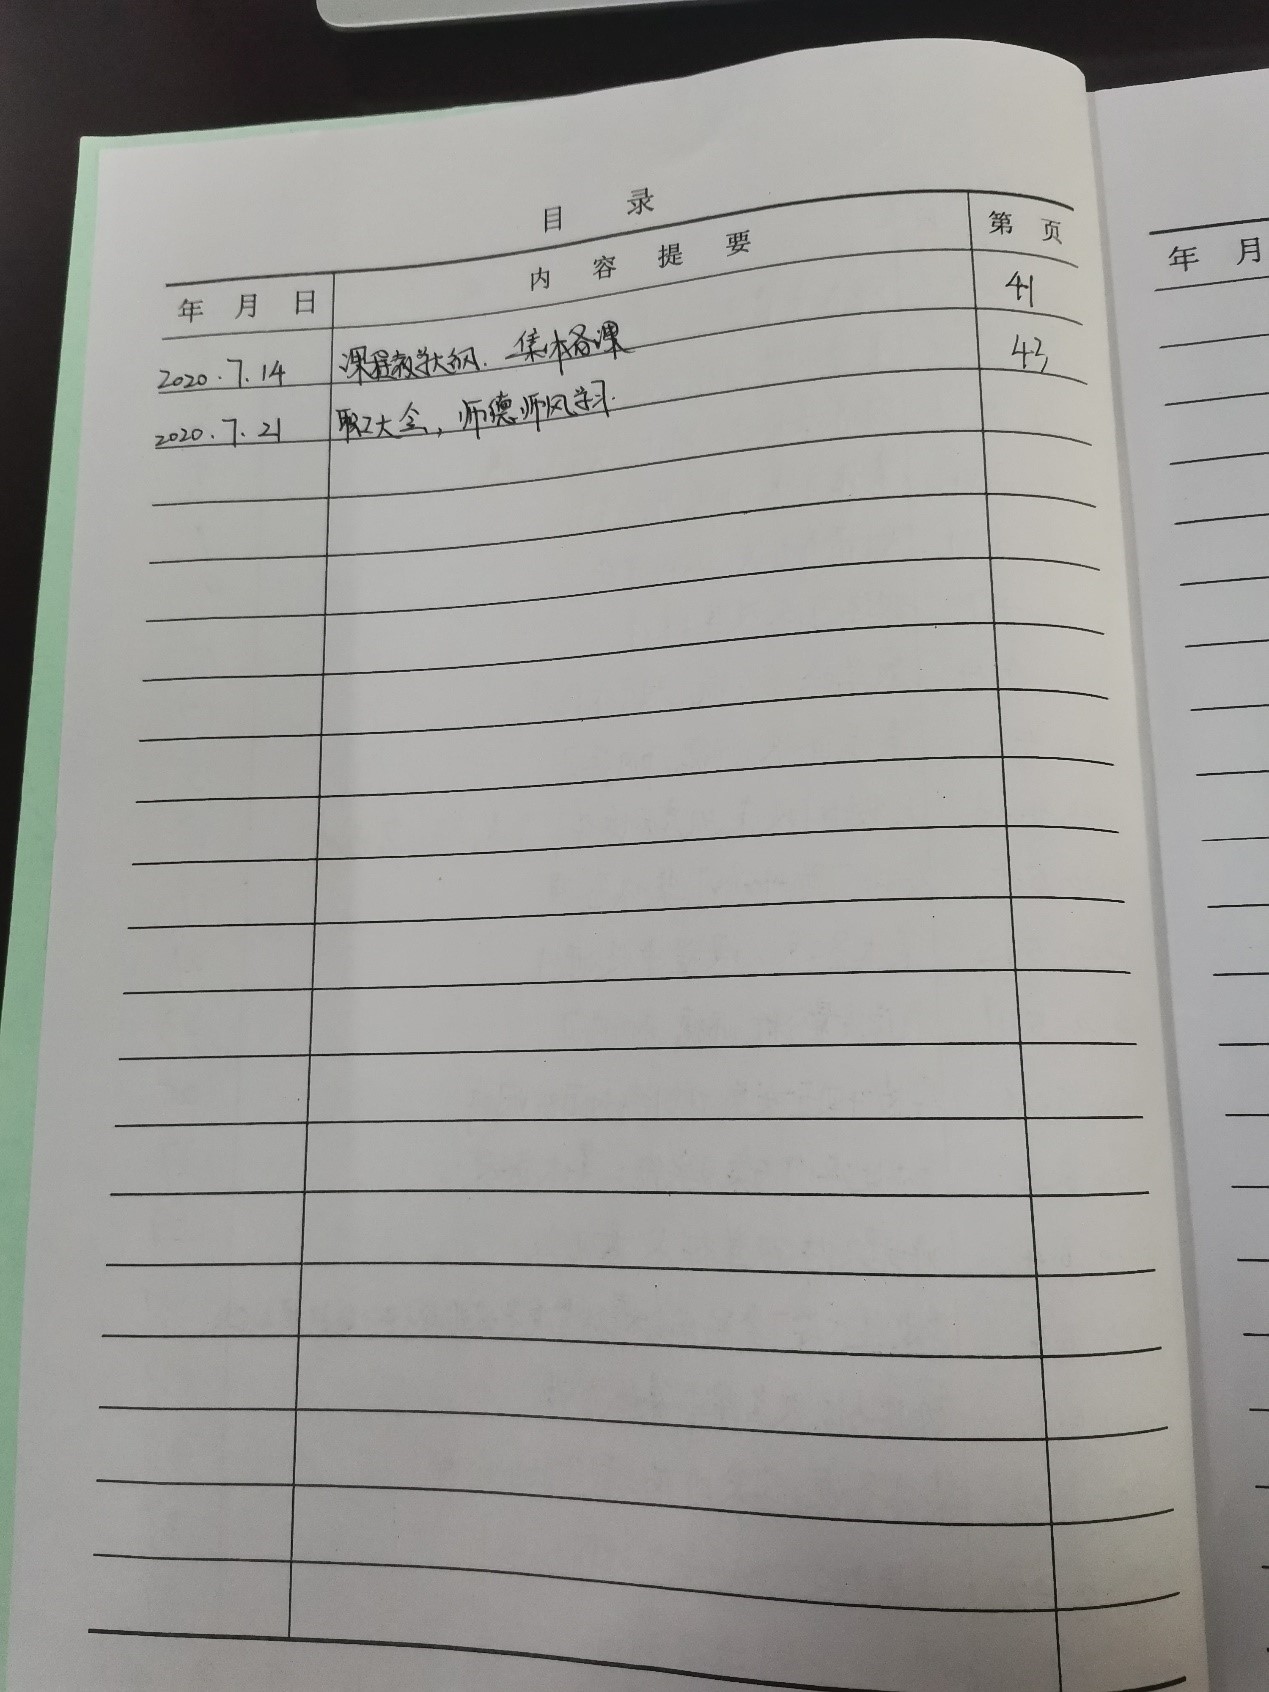 目 录
年 月 日 内 容 提 要 第 页
2020.7.14 课程教学大纲. 集体备课 41
2020.7.21 职工大会, 师德师风学习. 43
年 月